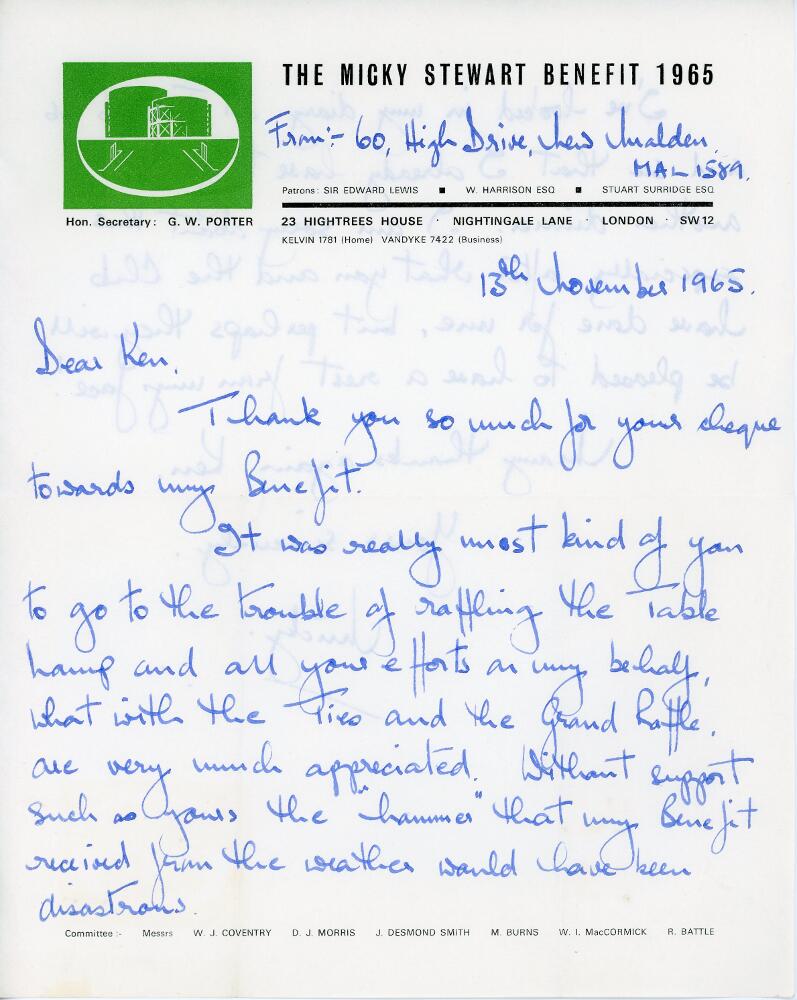 THE MICKY STEWART BENEFIT 1965
From:- 60, High Drive, New Malden.
MAL 1589.
Patrons: SIR EDWARD LEWIS ■ W. HARRISON ESQ ■ STUART SURRIDGE ESQ
Hon. Secretary: G. W. PORTER
23 HIGHTREES HOUSE · NIGHTINGALE LANE · LONDON · SW12
KELVIN 1781 (Home) VANDYKE 7422 (Business)
13th November 1965.
Dear Ken,
Thank you so much for your cheque
towards my Benefit.
It was really most kind of you
to go to the trouble of raffling the Table
Lamp and all your efforts on my behalf,
what with the Ties and the Grand Raffle,
are very much appreciated. Without support
such as yours the "hammer" that my Benefit
received from the weather would have been
disastrous.
Committee :- Messrs W. J. COVENTRY D. J. MORRIS J. DESMOND SMITH M. BURNS W. I. MacCORMICK R. BATTLE